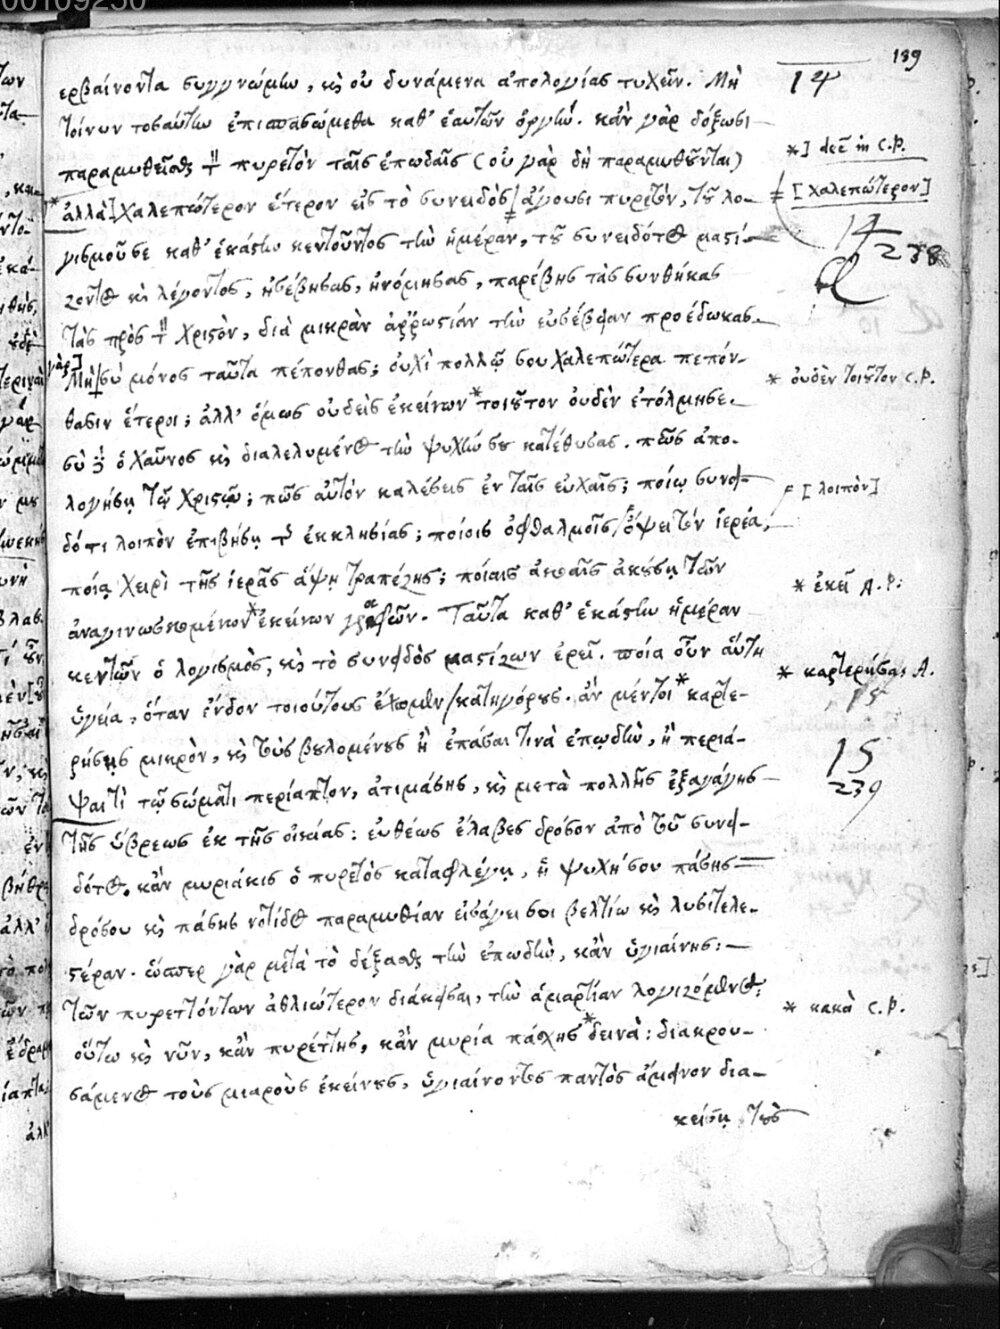 00109250
189
ερβαίνοντα συγγνώμην, κὶ οὐ δυνάμενα ἀπολογίας τυχεῖν. Μὴ
14
τοίνυν τοσαύτην ἐπισπασώμεθα καθ' ἑαυτῶν ὀργήν. κἂν γὰρ δόξωσι
παραμυθεῖσθαι τὸν πυρετὸν ταῖς ἐπωδαῖς (οὐ γὰρ δὴ παραμυθοῦνται)
*] deē in C.P.
*ἀλλὰ] χαλεπώτερον ἕτερον εἰς τὸ συνειδὸς/ ἄγουσι πυρετὸν, τοῦ λο-
[χαλεπώτερον]
γισμοῦ σε καθ' ἑκάστην κεντοῦντος τὴν ἡμέραν, τοῦ συνειδότος μαστί-
14
238
ζοντος κὶ λέγοντος, ἠσέβησας, ἠνόμησας, παρέβης τὰς συνθήκας
τὰς πρὸς τὸν Χριστὸν, διὰ μικρὰν ἀῤῥωστίαν τὴν εὐσέβειαν προέδωκας.
γὰρ]
Μὴ σὺ μόνος ταῦτα πέπονθας; οὐχὶ πολλῷ σου χαλεπώτερα πεπόν-
* οὐδὲν τοιοῦτον C.P.
θασιν ἕτεροι; ἀλλ' ὅμως οὐδεὶς ἐκείνων *τοιοῦτον οὐδὲν ἐτόλμησε.
σὺ δὲ ὁ χαῦνος κὶ διαλελυμένος τὴν ψυχήν σου κατέθυσας. πῶς ἀπο-
λογήσῃ τῷ Χριστῷ; πῶς αὐτὸν καλέσεις ἐν ταῖς εὐχαῖς; ποίῳ συνει-
[λοιπὸν]
δότι λοιπὸν ἐπιβήσῃ τῆς ἐκκλησίας; ποίοις ὀφθαλμοῖς/ ὄψει τὸν ἱερέα,
ποίᾳ χειρὶ τῆς ἱερᾶς ἅψῃ τραπέζης; ποίαις ἀκοαῖς ἀκούσῃ τῶν
* ἐκεῖ A.P.
ἀναγινωσκομένων *ἐκείνων γραφῶν. Ταῦτα καθ' ἑκάστην ἡμέραν
κεντῶν ὁ λογισμὸς, κὶ τὸ συνειδὸς μαστίζων ἐρεῖ. ποία οὖν αὕτη
* καρτερήσας A.
15
ὑγεία, ὅταν ἔνδον τοιούτους ἔχωμεν/ κατηγόρους. ἂν μέντοι *καρτε-
ρήσῃς μικρὸν, κὶ τοὺς βουλομένους ἢ ἐπᾶσαι τινὰ ἐπῳδὴν, ἢ περιά-
15
239
ψαι τὶ τῷ σώματι περίαπτον, ἀτιμάσῃς, κὶ μετὰ πολλῆς ἐξαγάγῃς
τῆς ὕβρεως ἐκ τῆς οἰκίας: εὐθέως ἔλαβες δρόσον ἀπὸ τοῦ συνει-
δότος. κἂν μυριάκις ὁ πυρετὸς καταφλέγῃ, ἡ ψυχή σου πάσης
δρόσου κὶ πάσης νοτίδος παραμυθίαν εἰσάγει σοι βελτίω κὶ λυσιτελε-
στέραν. ὥσπερ γὰρ μετὰ τὸ δέξασθαι τὴν ἐπωδὴν, κἂν ὑγιαίνῃς:
τῶν πυρεττόντων ἀθλιώτερον διάκεισαι, τὴν ἁμαρτίαν λογιζόμενος:
* κακὰ C.P.
οὕτω κὶ νῦν, κἂν πυρέττῃς, κἂν μυρία πάσχῃς *δεινὰ: διακρου-
σάμενος τοὺς μιαροὺς ἐκείνους, ὑγιαίνοντος παντὸς ἄμεινον δια-
κείσῃ τοὺς